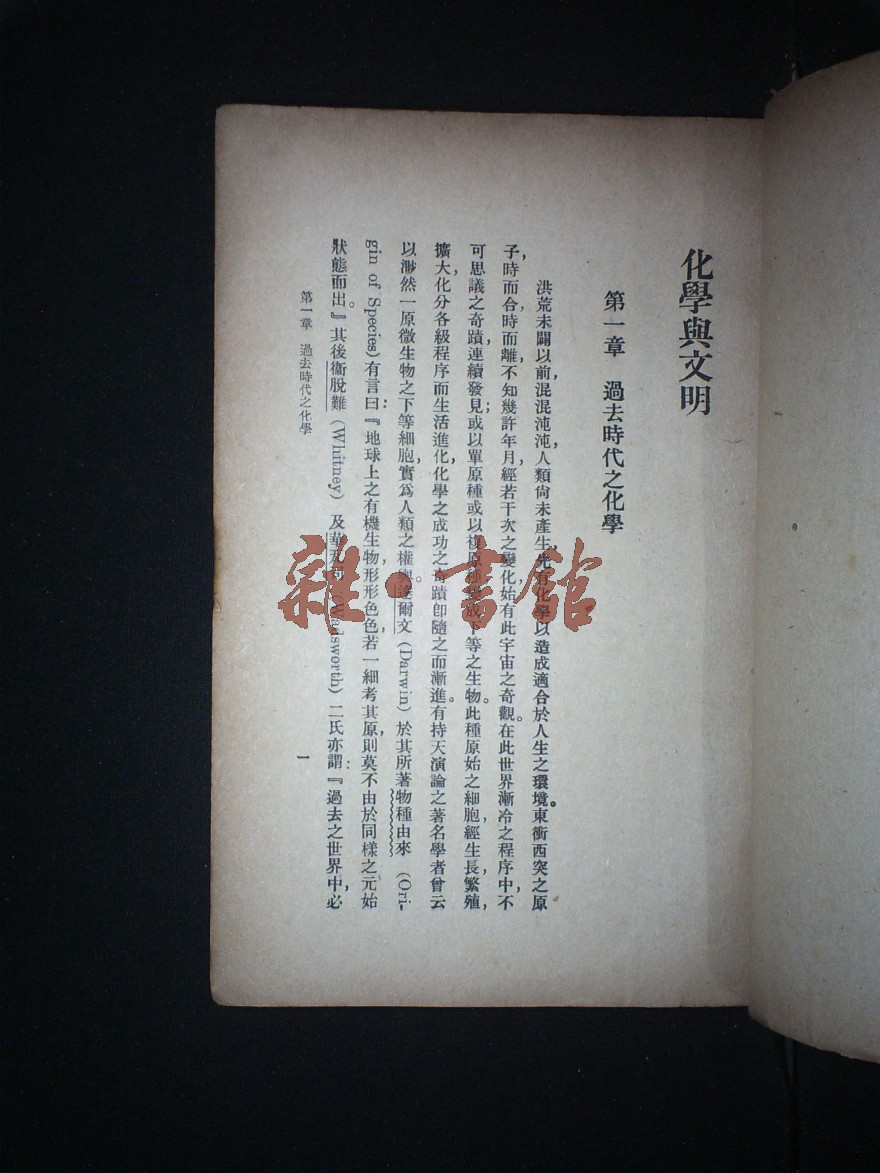 化學與文明
第一章　過去時代之化學
洪荒未闢以前，混混沌沌，人類尚未產生，先有化學以造成適合於人生之環境。東衝西突之原
子，時而合，時而離，不知幾許年月，經若干次之變化，始有此宇宙之奇觀。在此世界漸冷之程序中，不
可思議之奇蹟，連續發見；或以單原種或以複原種，下等之生物。此種原始之細胞，經生長，繁殖，
擴大，化分各級程序而生活進化，化學之成功之奇蹟卽隨之而漸進。有持天演論之著名學者曾云
以渺然一原微生物之下等細胞，實爲人類之權輿。達爾文 (Darwin) 於其所著物種由來 (Ori-
gin of Species) 有言曰：『地球上之有機生物，形形色色，若一細考其原，則莫不由於同樣之元始
狀態而出。』其後衞脫難 (Whitney) 及華瓦 (Wadsworth) 二氏亦謂：『過去之世界中，必
第一章　過去時代之化學
一
雜·書館